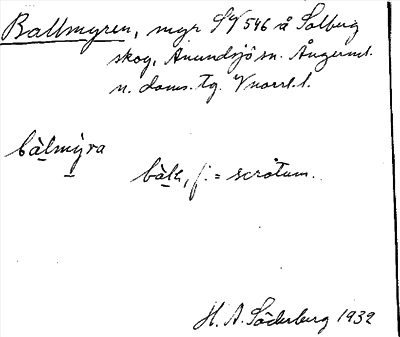 Ballmyren, myr SV 546 å Solberg
skog, Anundsjö sn. Ångerml.
n. doms. tg. Vnorrl. l.
bàlmỳra
bàll, f. = scrotum.
H. A. Söderberg 1932